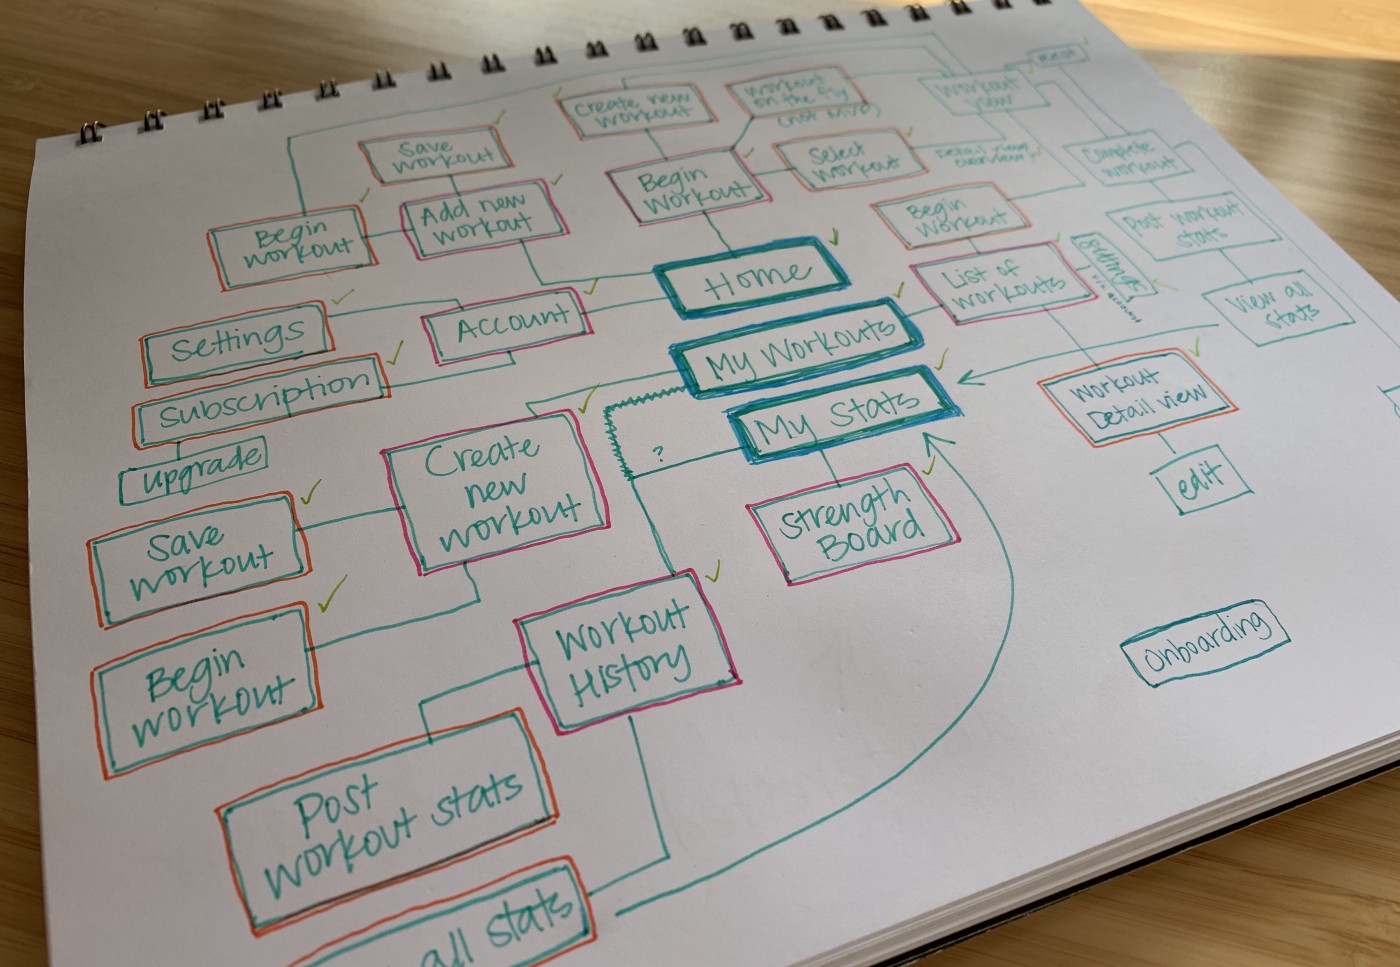 Rest
Workout
view
Workout
on the fly
(not MVP)
Create new
workout
Save
workout
Begin
Workout
Select
workout
Detail view/
overview
Complete
workout
Begin
workout
Add new
workout
Begin
workout
Post workout
stats
Home
List of
workouts
Settings
View all
stats
Settings
Account
My Workouts
Subscription
My Stats
Workout
Detail view
upgrade
Create
new
workout
?
edit
Strength
Board
Save
workout
Begin
workout
Workout
History
onboarding
Post
workout stats
all stats